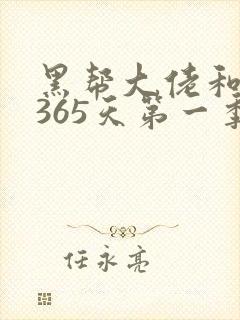 黑帮大佬和
365天第一季
任永亮